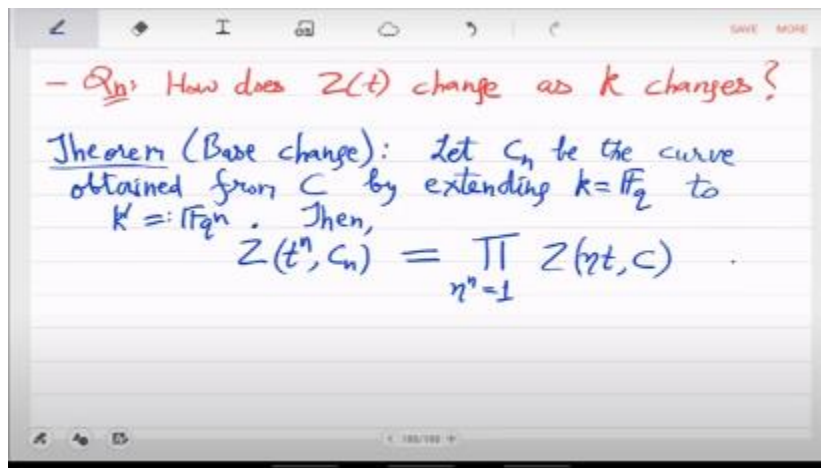 SAVE MORE
- Qn: How does Z(t) change as k changes?
Theorem (Base change): Let Cₙ be the curve
obtained from C by extending k = 𝔽_q to
k' =: 𝔽_qⁿ. Then,
Z(tⁿ, Cₙ) = ∏ Z(ηt, C) .
ηⁿ=1